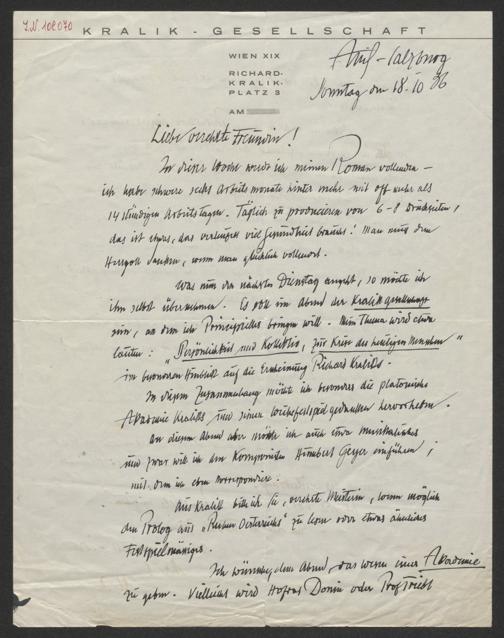 I.N. 108070
KRALIK - GESELLSCHAFT
WIEN XIX
RICHARD-
KRALIK-
PLATZ 3
AM
Sonntag den 18. IO 36
Liebe verehrte Freundin!
In dieser Woche werde ich meinen Roman vollenden –
ich habe schwere sechs Arbeitsmonate hinter mir mit oft mehr als
14 stündigen Arbeitstagen. Täglich zu producieren von 6-8 Druckseiten,
das ist etwas, das verteufelt viel Gesundheit braucht! Man muss dem
Herrgott danken, wenn man glücklich vollendet.
Was nun den nächsten Dienstag angeht, so möchte ich
ihn selbst übernehmen. Es soll ein Abend der Kralikgesellschaft
sein, an dem ich Principielles bringen will. Mein Thema wird etwa
lauten: „Persönlichkeit und Kollektiv, zur Krise des heutigen Menschen"
im besonderen Hinblick auf die Erscheinung Richard Kraliks.
In diesem Zusammenhang möchte ich besonders die platonische
Akademie Kraliks und seinen Weihefestspielgedanken hervorheben.
An diesem Abend aber möchte ich auch etwas Musikalisches
und zwar will ich den Komponisten Geyer einführen,
mit dem ich eben korrespondiere.
Aus Kralik bitte ich Sie, verehrte Meisterin, wenn möglich
den Prolog aus „ Oesterreichs" zu lesen oder etwas ähnliches
Festspielmässiges.
Ich wünsche, dem Abend das Wesen einer Akademie
zu geben. Vielleicht wird Hofrat Donin oder Prof.